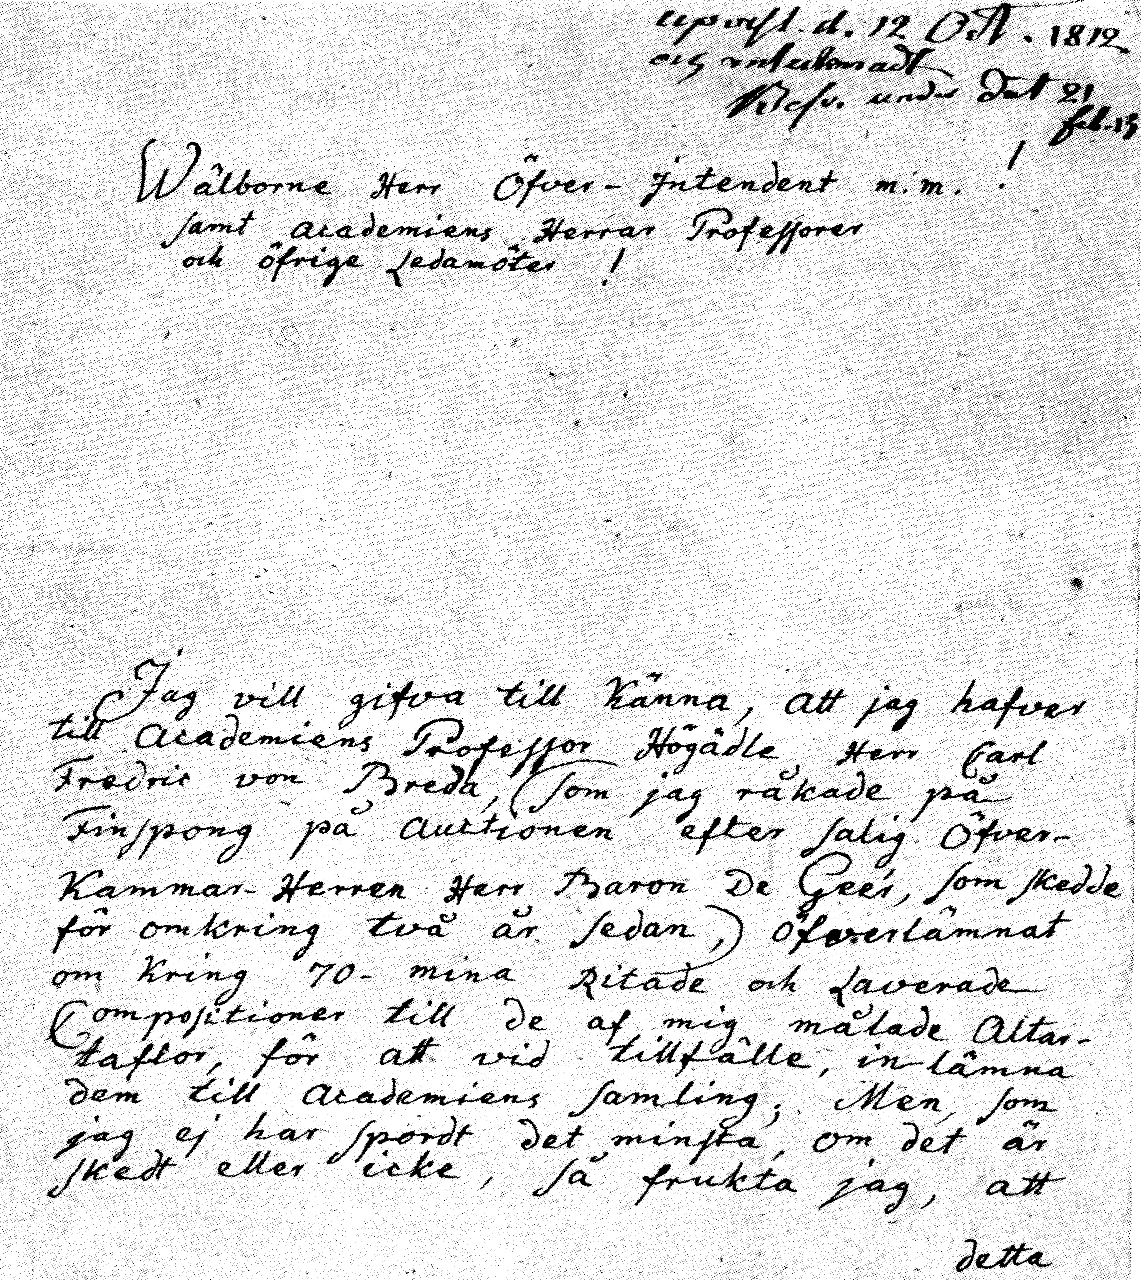 upvist d. 12 Oct. 1812
och
Resv. under dat 21
feb. 13
Wälborne Herr Öfver-Intendent m.m. !
samt Academiens Herrar Professorer
och öfrige Ledamöter !
Jag vill gifva till Känna, att jag hafver
till Academiens Professor Högädle Herr Carl
Fredric von Breda, (som jag råkade på
Finspong på Auctionen efter salig Öfver-
Kammar-Herren Herr Baron De Geer, som skedde
för omkring två år sedan,) öfverlämnat
om kring 70- mina Ritade och Laverade
Compositioner till de af mig målade Altar-
taflor, för att vid tillfälle, in lämna
dem till Academiens samling; Men, som
jag ej har spordt det minsta, om det är
skedt eller icke, så fruktar jag, att
detta